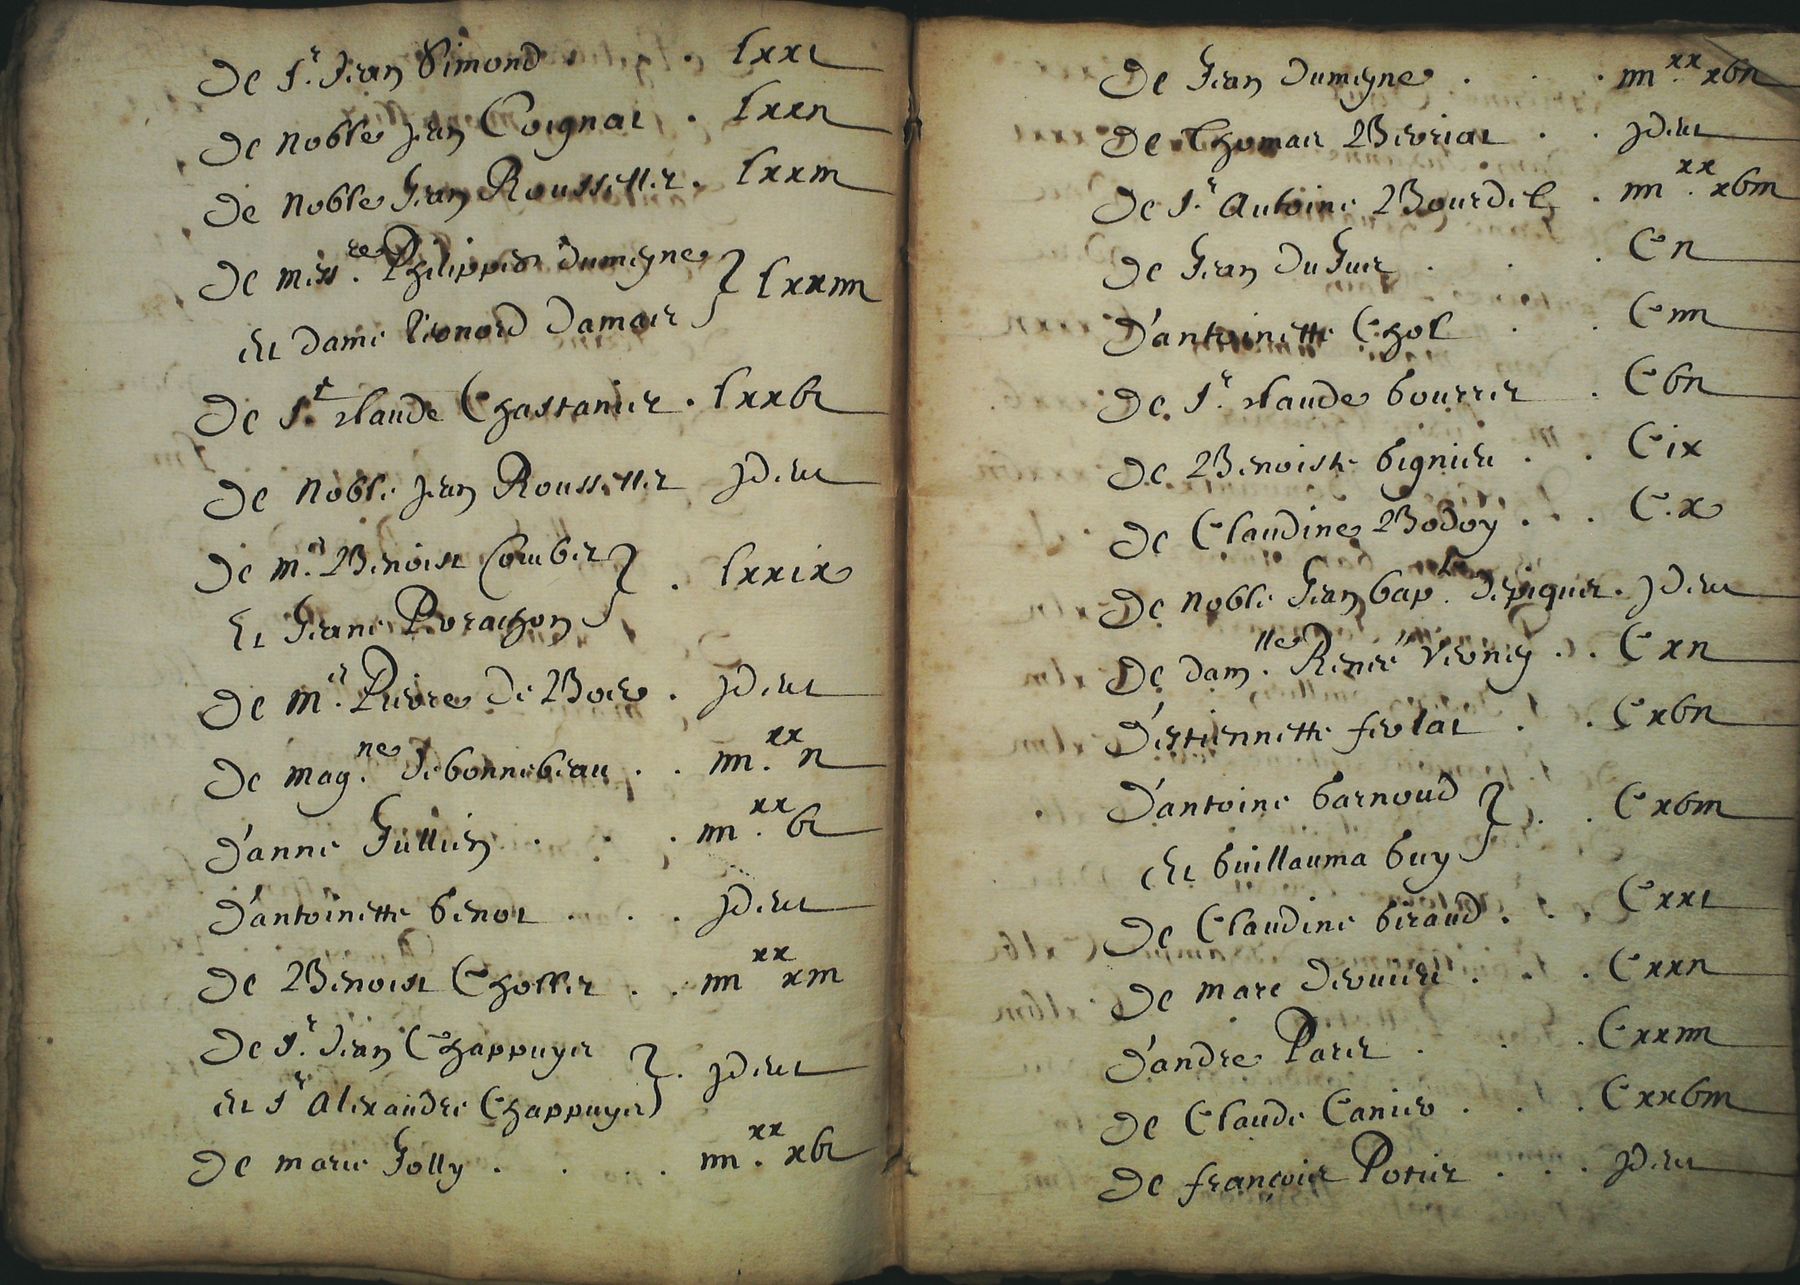 De Sr. Jean Simond . . lxxi
De noble Jean Coignat . lxxii
De noble Jean Rousseller . lxxiii
De messre. Philippes Dumeyne
et dame Leonord Damas } lxxiiii
De St. Claude Chastanier . lxxvi
De noble Jean Rousseller jdem
De Mr. Benoist Combet
Et Jeane Porachon } . lxxix
De Mr. Pierre de Boer . jdem
De Magne. Debonnebeau . . iiii.xx ii
D'anne Jullien . . . iiii.xx vi
D'antoinette Genot . . . jdem
De Benoist Chollet . . iiii xx xiii
De Sr. Jean Chappuyer
et Sr Alexandre Chappuyer } . jdem
De Marie Jolly . . . . iiii.xx xvi
De Jean Dumeyne . . . iiii.xx xvii
De Thomas Bevriat . . jdem
De Sr. Antoine Bourdel . iiii.xx xviii
De Jean Du Juer . . . C ii
D'antoinette Chol . . C iiii
De Sr. Claude Gourrer . C vii
De Benoiste Gignieu . . C ix
De Claudine Bodoy . . . C.x
De noble Jean Bapte. Depiquer . jdem
De damlle. Renée Verney . . C xii
D'estiennette Ferlat . . C xvii
D'antoine Garnoud
Et Guillauma Guy } . . C xviii
De Claudine Giraud . . . C xxi
De Marc . . . C xxii
D'andre Parer . . . C xxiiii
De Claude Canier . . . C xxviii
De François Potier . . . jdem